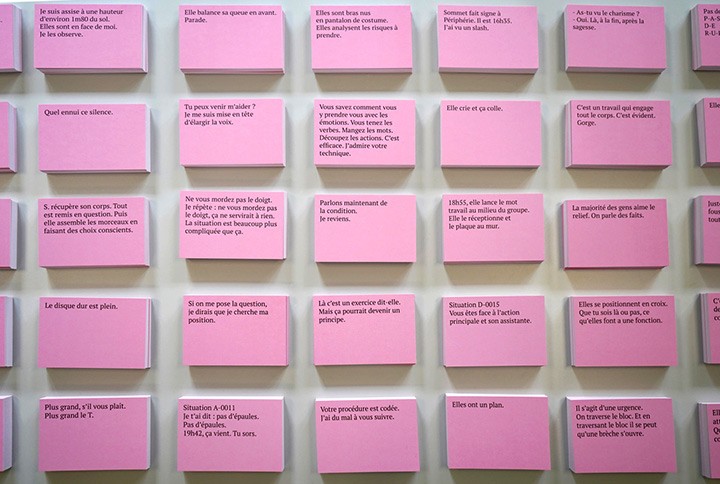 Je suis assise à une hauteur
d'environ 1m80 du sol.
Elles sont en face de moi.
Je les observe.
Elle balance sa queue en avant.
Parade.
Elles sont bras nus
en pantalon de costume.
Elles analysent les risques à
prendre.
Sommet fait signe à
Périphérie. Il est 16h35.
J'ai vu un slash.
- As-tu vu le charisme ?
- Oui. Là, à la fin, après la
sagesse.
Pas de
P-A-S
D-E
Quel ennui ce silence.
Tu peux venir m'aider ?
Je me suis mise en tête
d'élargir la voix.
Vous savez comment vous
y prendre vous avec les
émotions. Vous tenez les
verbes. Mangez les mots.
Découpez les actions. C'est
efficace. J'admire votre
technique.
Elle crie et ça colle.
C'est un travail qui engage
tout le corps. C'est évident.
Gorge.
S. récupère son corps. Tout
est remis en question. Puis
elle assemble les morceaux en
faisant des choix conscients.
Ne vous mordez pas le doigt.
Je répète : ne vous mordez pas
le doigt, ça ne servirait à rien.
La situation est beaucoup plus
compliquée que ça.
Parlons maintenant de
la condition.
Je reviens.
18h55, elle lance le mot
travail au milieu du groupe.
Elle le réceptionne et
le plaque au mur.
La majorité des gens aime le
relief. On parle des faits.
Le disque dur est plein.
Si on me pose la question,
je dirais que je cherche ma
position.
Là c'est un exercice dit-elle.
Mais ça pourrait devenir un
principe.
Situation D-0015
Vous êtes face à l'action
principale et son assistante.
Elles se positionnent en croix.
Que tu sois là ou pas, ce
qu'elles font a une fonction.
Plus grand, s'il vous plait.
Plus grand le T.
Situation A-0011
Je t'ai dit : pas d'épaules.
Pas d'épaules.
19h42, ça vient. Tu sors.
Votre procédure est codée.
J'ai du mal à vous suivre.
Elles ont un plan.
Il s'agit d'une urgence.
On traverse le bloc. Et en
traversant le bloc il se peut
qu'une brèche s'ouvre.